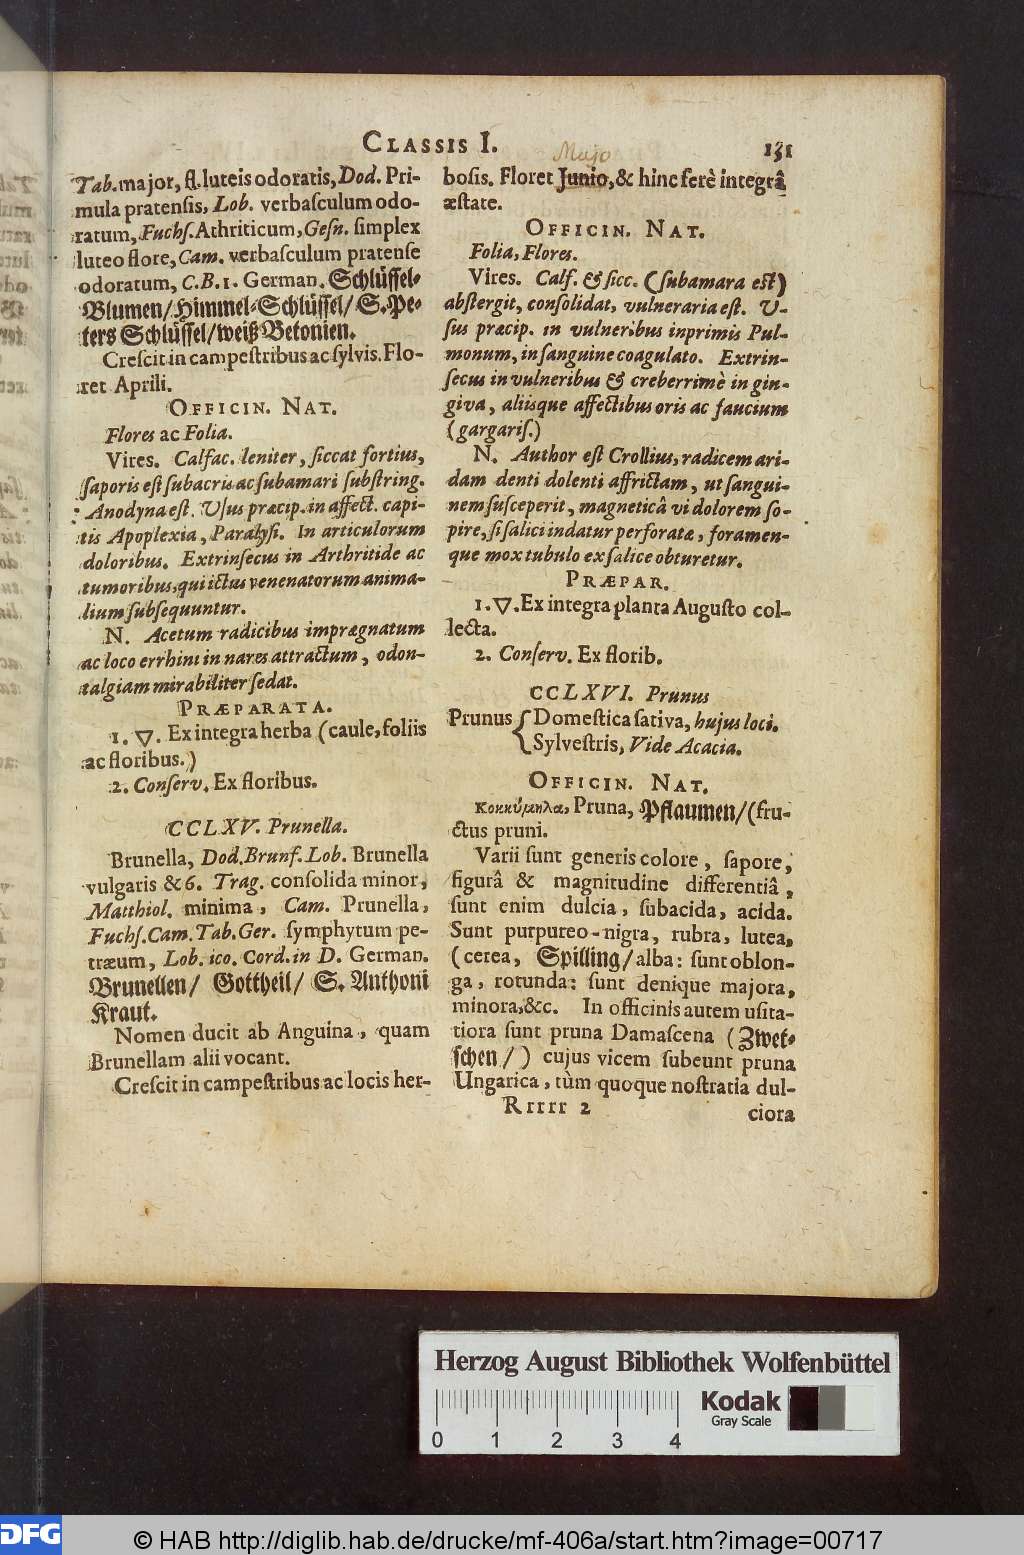 CLASSIS I.
Majo
131
Tab. major, fl. luteis odoratis, Dod. Pri-
mula pratensis, Lob. verbasculum odo-
ratum, Fuchs. Athriticum, Gesn. simplex
luteo flore, Cam. verbasculum pratense
odoratum, C.B. 1. German. Schlüssel-
Blumen/ Himmel-Schlüssel/ S. Pe-
ters Schlüssel/ weiß Betonien.
Crescit in campestribus ac sylvis. Flo-
ret Aprili.
OFFICIN. NAT.
Flores ac Folia.
Vires. Calfac. leniter, siccat fortius,
saporis est subacris ac subamari substring.
Anodyna est. Usus præcip. in affect. capi-
tis Apoplexia, Paralysi. In articulorum
doloribus. Extrinsecus in Arthritide ac
tumoribus, qui ictus venenatorum anima-
lium subsequuntur.
N. Acetum radicibus imprægnatum
ac loco errhini in nares attractum, odon-
talgiam mirabiliter sedat.
PRÆPARATA.
1. 🜄. Ex integra herba (caule, foliis
ac floribus.)
2. Conserv. Ex floribus.
CCLXV. Prunella.
Brunella, Dod. Brunf. Lob. Brunella
vulgaris & 6. Trag. consolida minor,
Matthiol. minima, Cam. Prunella,
Fuchs. Cam. Tab. Ger. symphytum pe-
træum, Lob. ico. Cord. in D. German.
Brunellen/ Gottheil/ S. Anthoni
Kraut.
Nomen ducit ab Anguina, quam
Brunellam alii vocant.
Crescit in campestribus ac locis her-
bosis. Floret Junio, & hinc ferè integrâ
æstate.
OFFICIN. NAT.
Folia, Flores.
Vires. Calf. & sicc. (subamara est)
abstergit, consolidat, vulneraria est. U-
sus præcip. in vulneribus inprimis Pul-
monum, in sanguine coagulato. Extrin-
secus in vulneribus & creberrimè in gin-
giva, aliisque affectibus oris ac faucium
(gargaris.)
N. Author est Crollius, radicem ari-
dam denti dolenti affrictam, ut sangui-
nem susceperit, magneticâ vi dolorem so-
pire, si salici indatur perforatæ, foramen-
que mox tubulo ex salice obturetur.
PRÆPAR.
1. 🜄. Ex integra planta Augusto col-
lecta.
2. Conserv. Ex florib.
CCLXVI. Prunus
Prunus { Domestica sativa, hujus loci.
Sylvestris, Vide Acacia.
OFFICIN. NAT.
Κοκκύμηλα, Pruna, Pflaumen/ (fru-
ctus pruni.
Varii sunt generis colore, sapore,
figurâ & magnitudine differentiâ,
sunt enim dulcia, subacida, acida.
Sunt purpureo-nigra, rubra, lutea,
(cerea, Spilling/ alba: sunt oblon-
ga, rotunda: sunt denique majora,
minora, &c. In officinis autem usita-
tiora sunt pruna Damascena (Zwet-
schen/) cujus vicem subeunt pruna
Ungarica, tùm quoque nostratia dul-
Rrrrr 2
ciora
Herzog August Bibliothek Wolfenbüttel
Kodak
Gray Scale
0 1 2 3 4
DFG
© HAB http://diglib.hab.de/drucke/mf-406a/start.htm?image=00717